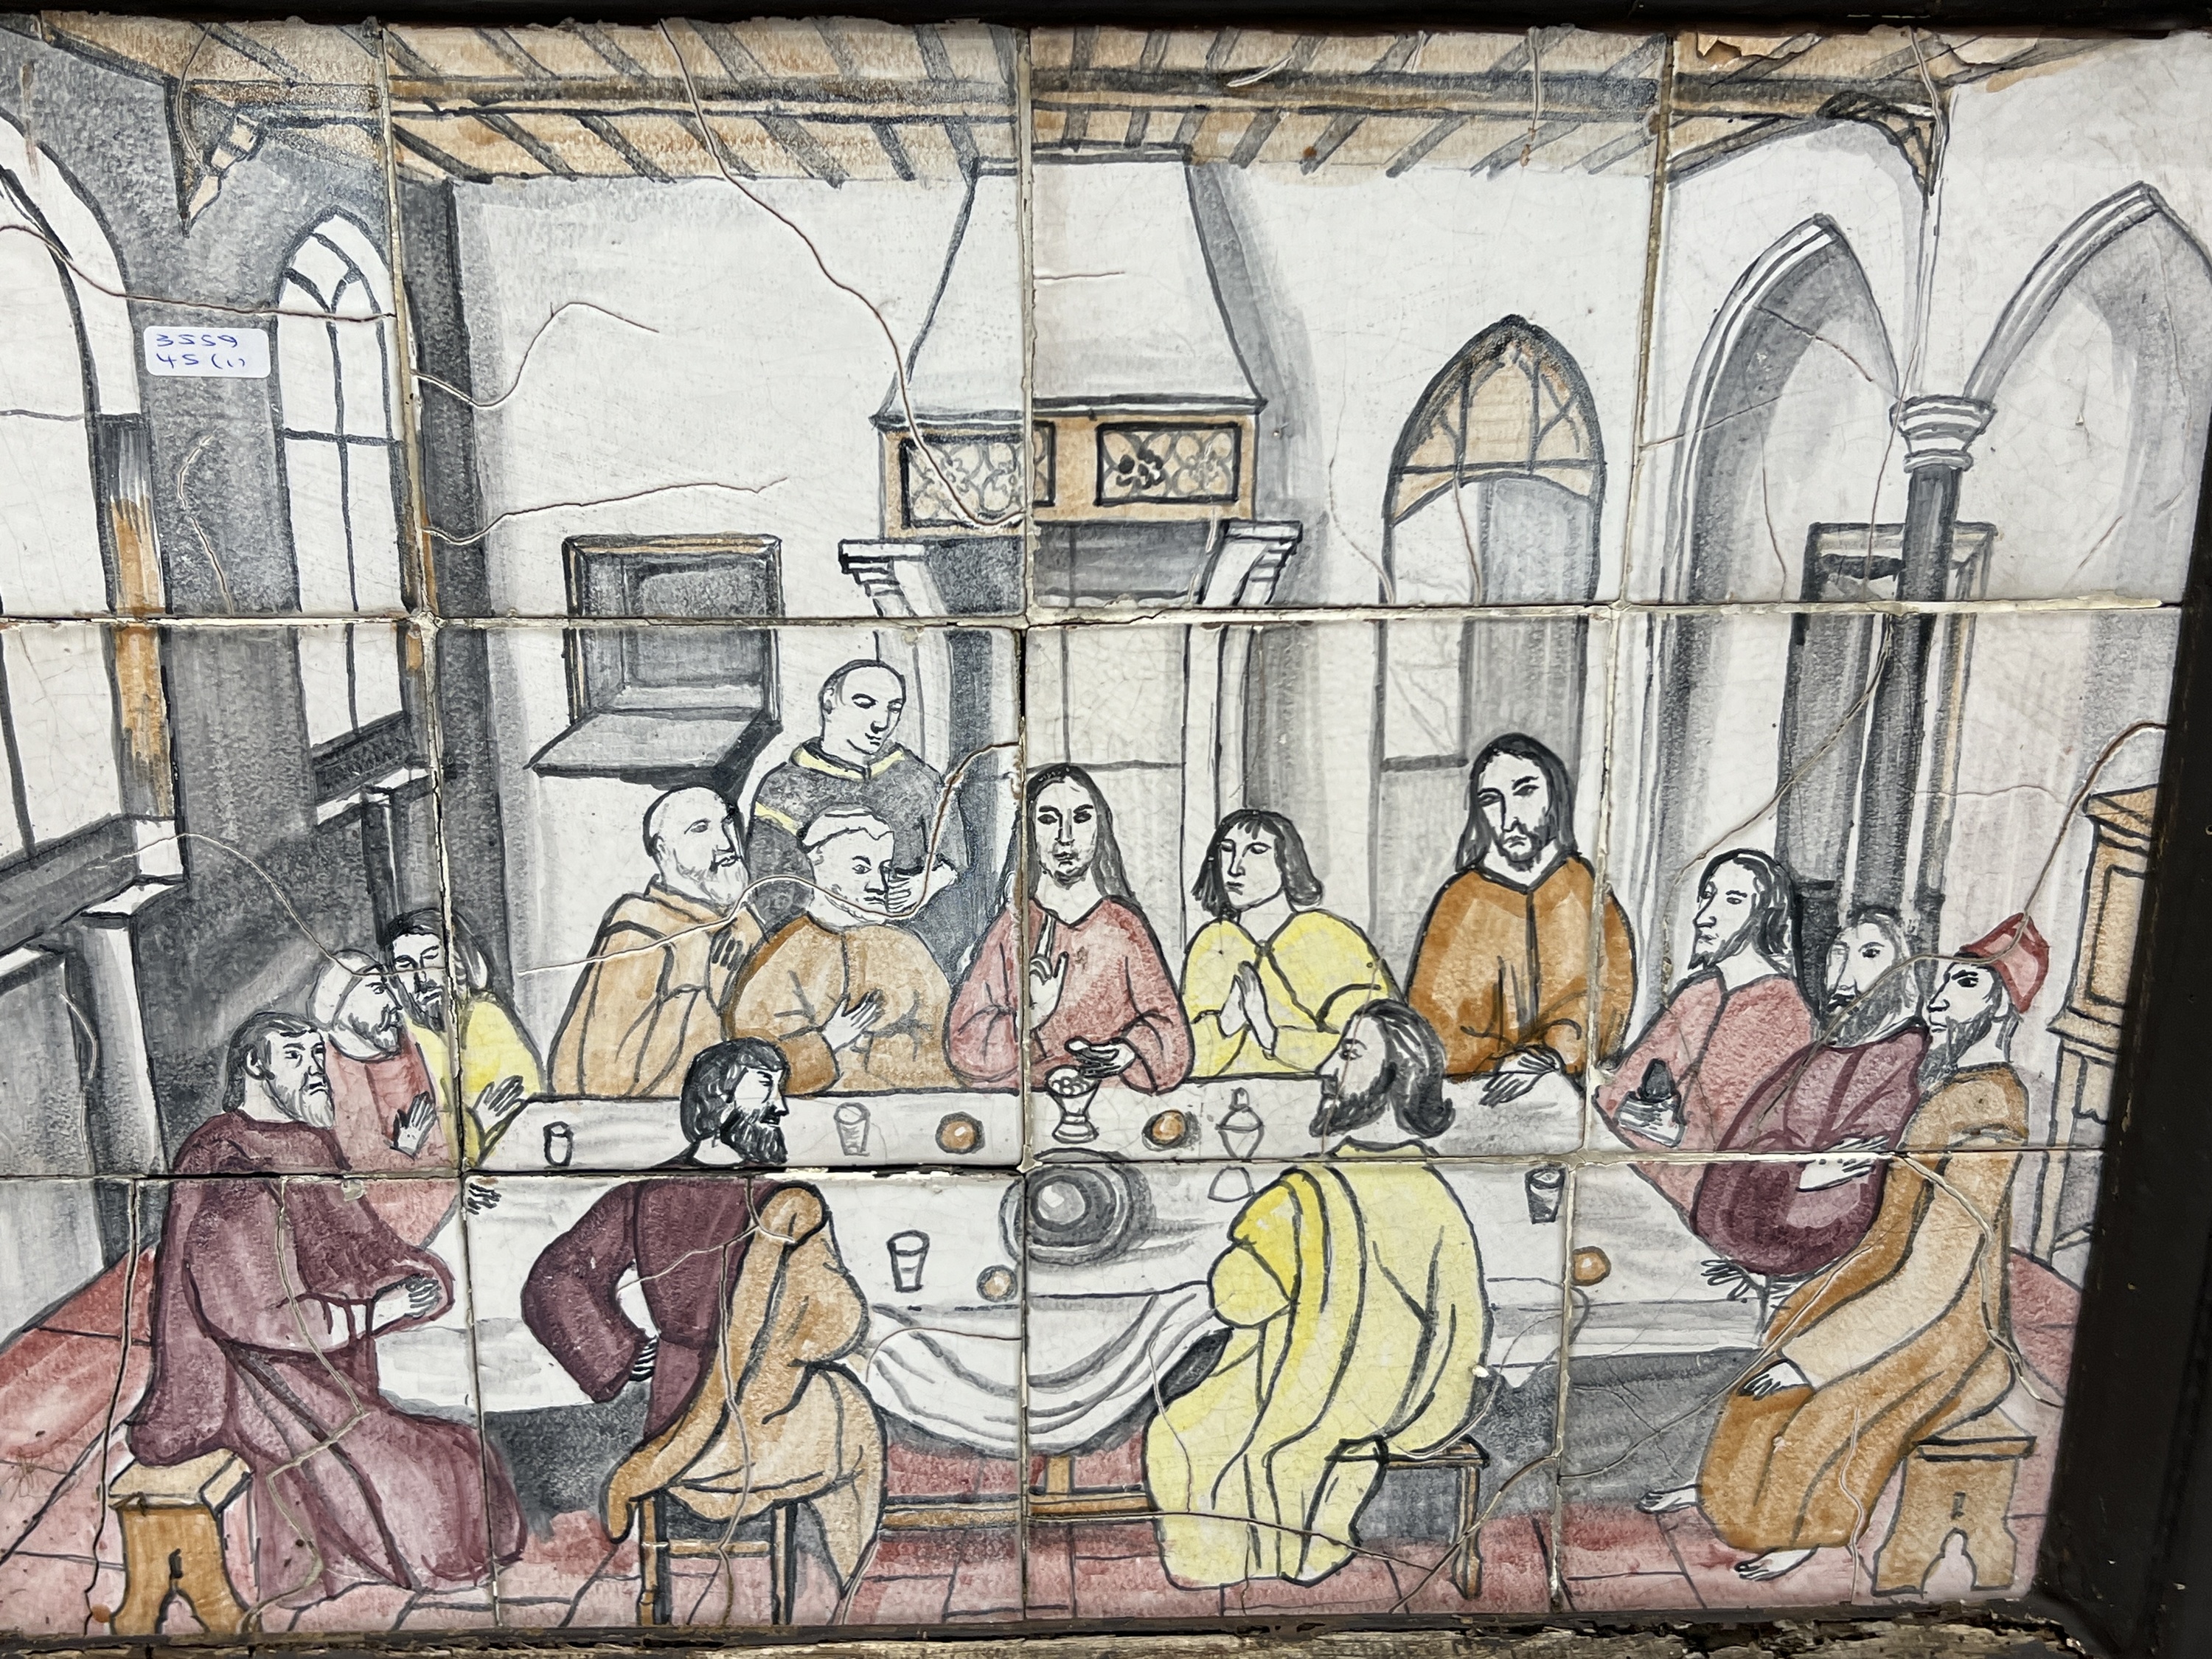 3559
45 (1)